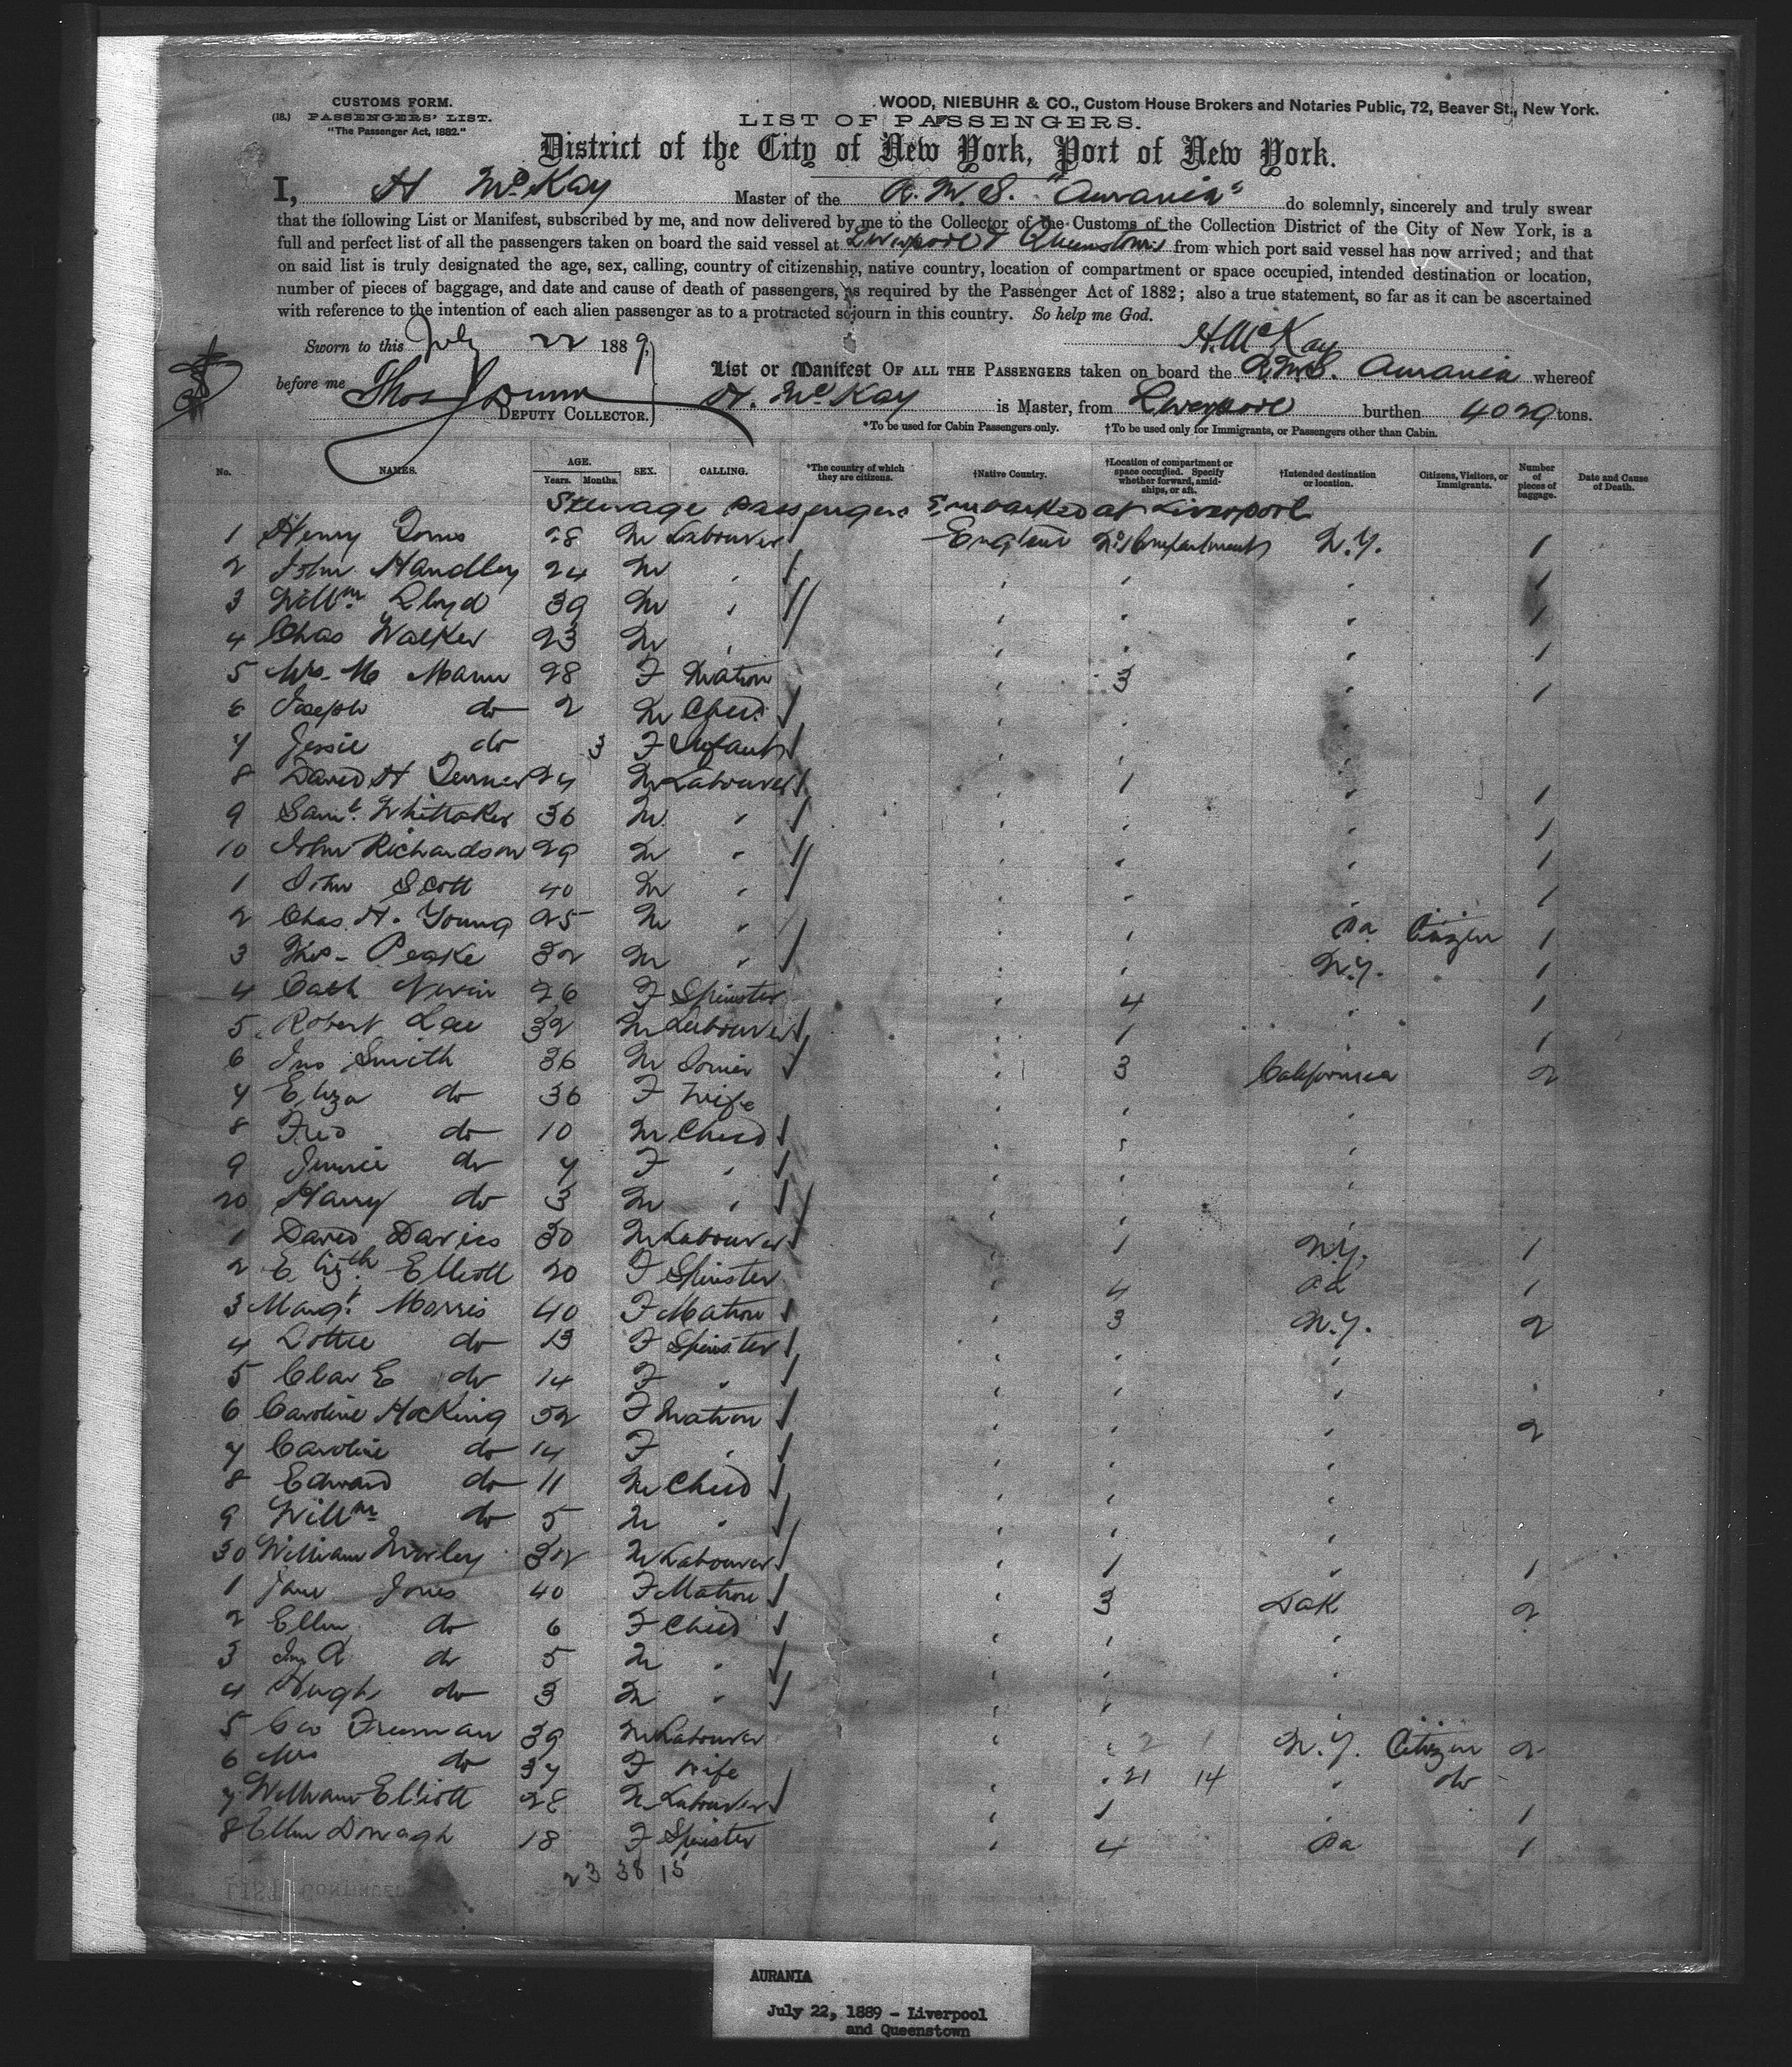 CUSTOMS FORM.
(18.) PASSENGERS' LIST.
"The Passenger Act, 1882."
WOOD, NIEBUHR & CO., Custom House Brokers and Notaries Public, 72, Beaver St., New York.
LIST OF PASSENGERS.
District of the City of New York, Port of New York.
I, H McKay Master of the R.M.S. "Aurania" do solemnly, sincerely and truly swear
that the following List or Manifest, subscribed by me, and now delivered by me to the Collector of the Customs of the Collection District of the City of New York, is a
full and perfect list of all the passengers taken on board the said vessel at Liverpool & Queenstown from which port said vessel has now arrived; and that
on said list is truly designated the age, sex, calling, country of citizenship, native country, location of compartment or space occupied, intended destination or location,
number of pieces of baggage, and date and cause of death of passengers, as required by the Passenger Act of 1882; also a true statement, so far as it can be ascertained
with reference to the intention of each alien passenger as to a protracted sojourn in this country. So help me God.
H. McKay
Sworn to this July 22 1889,
before me Thos Dunn
DEPUTY COLLECTOR.
List or Manifest OF ALL THE PASSENGERS taken on board the R.M.S. Aurania whereof
H. McKay is Master, from Liverpool burthen 4029 tons.
*To be used for Cabin Passengers only. †To be used only for Immigrants, or Passengers other than Cabin.
No. NAMES. AGE. Years. Months. SEX. CALLING. *The country of which they are citizens. †Native Country. †Location of compartment or space occupied. Specify whether forward, amidships, or aft. †Intended destination or location. Citizens, Visitors, or Immigrants. Number of pieces of baggage. Date and Cause of Death.
Steerage passengers Embarked at Liverpool
1 Henry 28 M Labourer England No 1 Compartment N.Y. 1
2 John Handley 24 M " " " " 1
3 Willm Lloyd 39 M " " " " 1
4 Chas Walker 23 M " " " " 1
5 Mrs M Mann 28 F Matron " 3 " 1
6 Joseph do 2 M Child " " "
7 Jessie do 3 F Infant " " "
8 David H Turner 24 M Labourer " 1 " 1
9 Saml. Whittaker 36 M " " " " 1
10 John Richardson 29 M " " " " 1
1 John Scott 40 M " " " " 1
2 Chas. H. Young 25 M " " " Pa Citizen 1
3 Thos. Peake 32 M " " " N.Y. 1
4 Cath Nevin 26 F Spinster " 4 " 1
5 Robert Lee 32 M Labourer " 1 " 1
6 Jno Smith 36 M Joiner " 3 California 2
7 Eliza do 36 F Wife " " "
8 Fred do 10 M Child " " "
9 Jennie do 7 F " " " "
20 Harry do 3 M " " " "
1 David Davies 30 M Labourer " 1 N.Y. 1
2 Elizth Elliott 20 F Spinster " 4 Pa 1
3 Margt. Morris 40 F Matron " 3 N.Y. 2
4 Lottie do 13 F Spinster " " "
5 Clar E do 14 F " " " "
6 Caroline Hocking 52 F Matron " " " 2
7 Caroline do 14 F " " " "
8 Edward do 11 M Child " " "
9 Willm do 5 M " " " "
30 William Morley 32 M Labourer " 1 " 1
1 Jane Jones 40 F Matron " 3 Dak 2
2 Ellen do 6 F Child " " "
3 Jno R do 5 M " " " "
4 Hugh do 3 M " " " "
5 Geo Freeman 39 M Labourer " " 2 1 N.Y. Citizen 2
6 Mrs do 37 F Wife " " 21 14 " do
7 William Elliott 28 M Labourer " 1 " 1
8 Ellen Donagh 18 F Spinster " 4 Pa 1
23 38 15
AURANIA
July 22, 1889 - Liverpool
and Queenstown